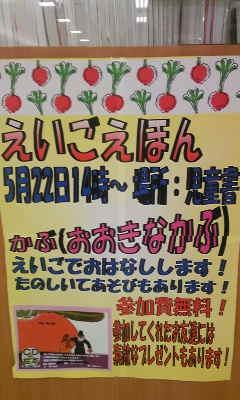 えいごえほん
5月22日14時～ 場所：児童書
かぶ(おおきなかぶ)
えいごでおはなしします！
たのしいてあそびもあります！
参加費無料！
参加してくれたお友達には
素敵なプレゼントもあります！